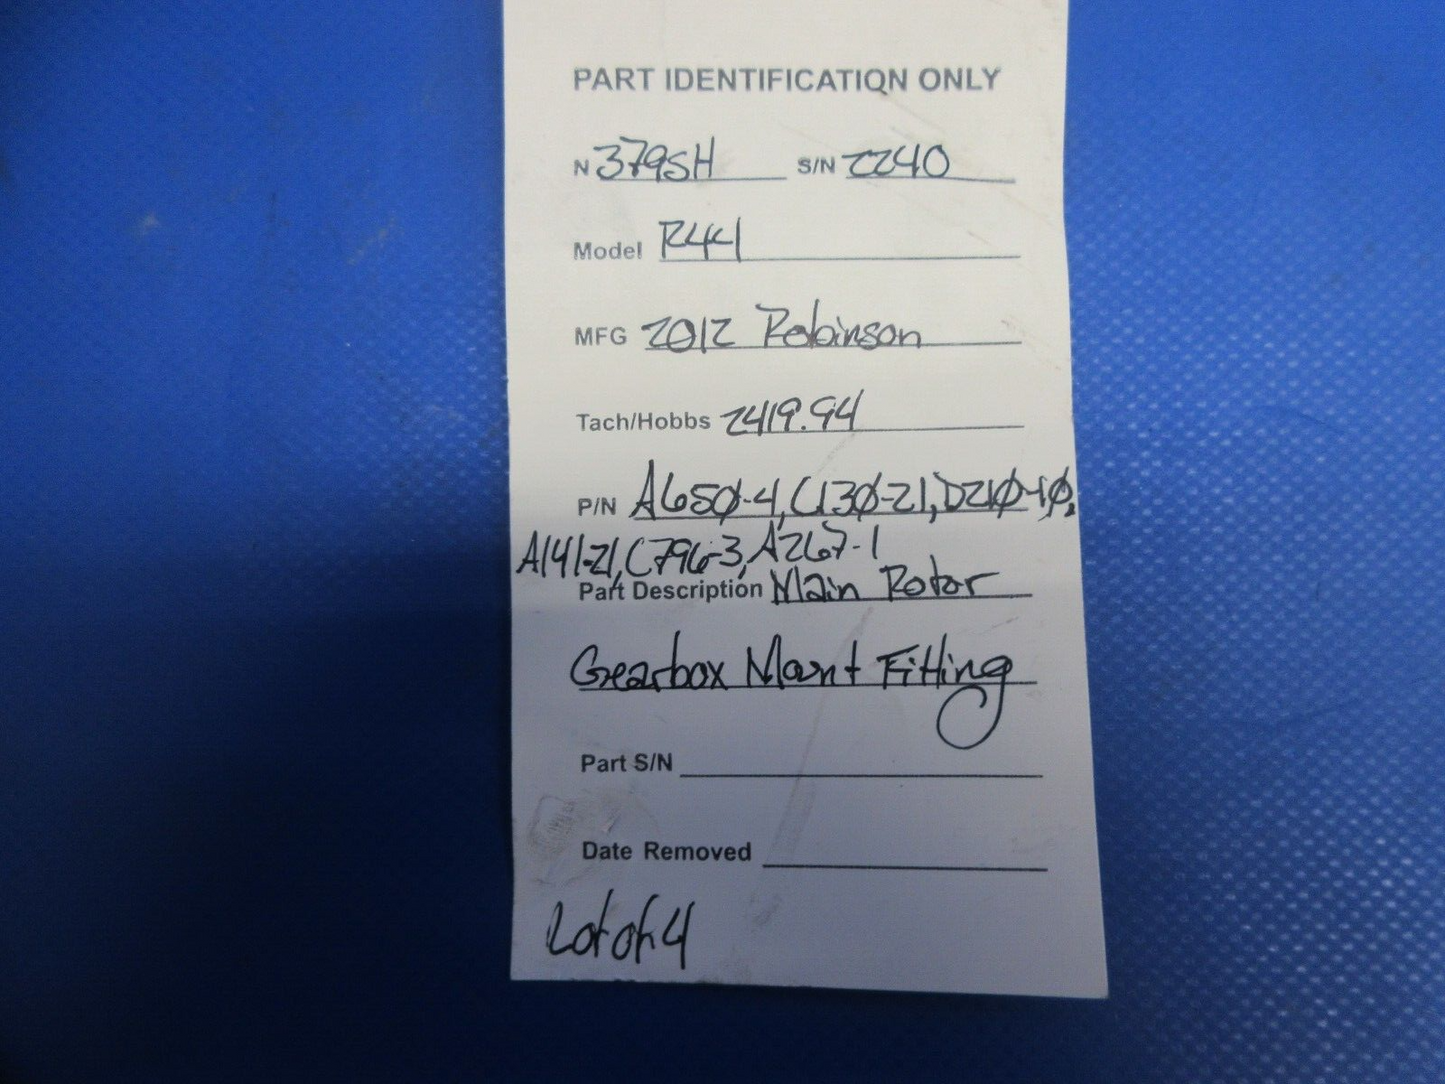 PART IDENTIFICATION ONLY
N 379SH S/N 2240
Model R44
MFG 2012 Robinson
Tach/Hobbs 2419.94
P/N A650-4, C130-21, D210-10,
A141-21, C796-3, A267-1
Part Description Main Rotor
Gearbox Mount Fitting
Part S/N
Date Removed
Lot of 4